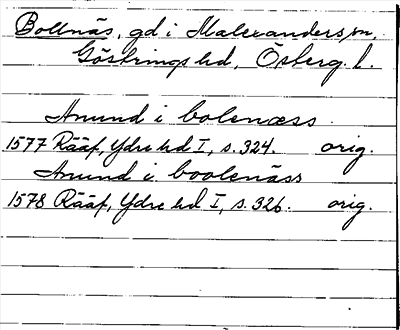 Bollnäs, gd i Malexanders sn,
Göstrings hd, Östergl.
Anund i bolenæss
1577 Rääf, Ydre hd I, s. 324. orig.
Anund i boolenäss
1578 Rääf, Ydre hd I, s. 326. orig.